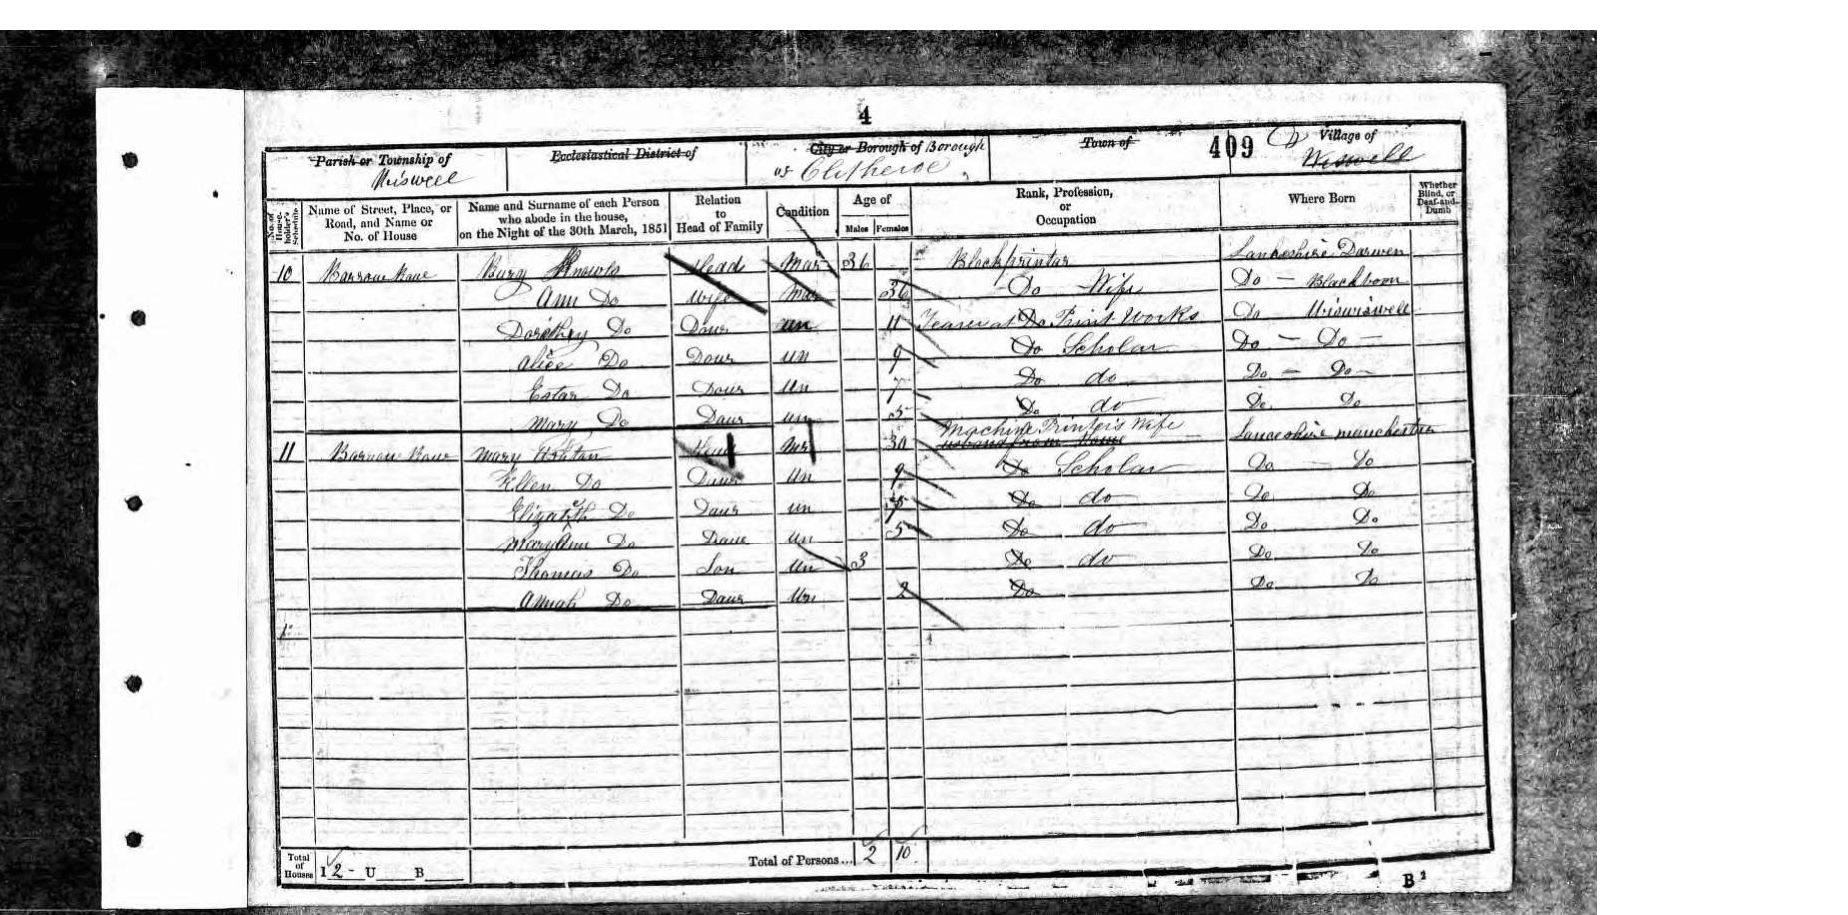 4
Parish or Township of Wiswell
Ecclesiastical District of
City or Borough of Borough of Clitheroe
Town of
409
Village of Wiswell
No. of House-holder's Schedule
Name of Street, Place, or Road, and Name or No. of House
Name and Surname of each Person who abode in the house, on the Night of the 30th March, 1851
Relation to Head of Family
Condition
Age of
Males Females
Rank, Profession, or Occupation
Where Born
Whether Blind, or Deaf-and-Dumb
10 Barrow Knowls Head Mar 36 Blockprinter Lancashire Darwen
Ann Do Wife Mar 36 Do Wife Do Blackboon
Dorothey Do Daur un 11 Teaser at Do Print Works Do
Alice Do Daur un 9 Do Scholar Do Do
Ester Do Daur un 7 Do do Do Do
Mary Do Daur un 5 Do do Do Do
11 Barrow Mary Head Mar 30 Machine Printer's Wife from Home Lancashire Manchester
Ellen Do Daur Un 9 Do Scholar Do Do
Elizabeth Do Daur un Do do Do Do
Mary Ann Do Daur Un 5 Do do Do Do
Thomas Do Son Un 3 Do do Do Do
Do Daur Un 2 Do Do Do
Total of Houses I 2 U B
Total of Persons... 2 10
B1